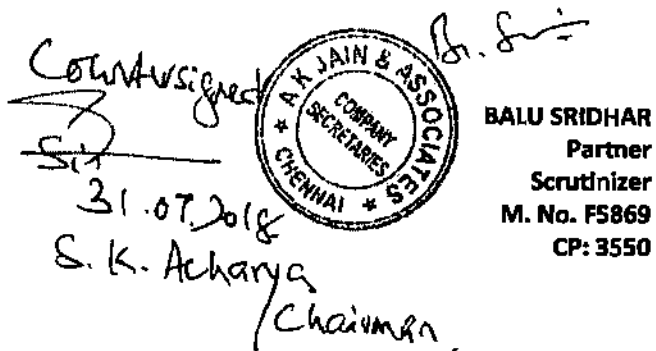 Countersigned
31.07.2018
S. K. Acharya
Chairman
A K JAIN & ASSOCIATES
COMPANY
SECRETARIES
* CHENNAI *
BALU SRIDHAR
Partner
Scrutinizer
M. No. F5869
CP: 3550